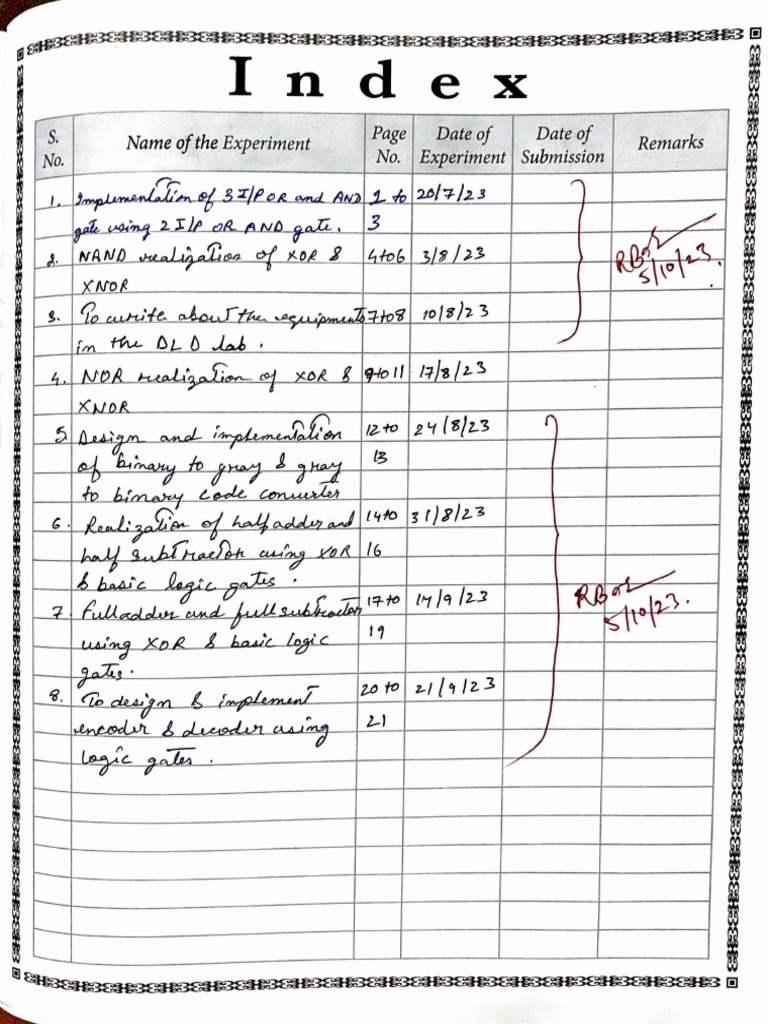 Index
S. No. Name of the Experiment Page No. Date of Experiment Date of Submission Remarks
1. Implementation of 3 I/P OR and AND 1 to 20/7/23
gate using 2 I/P OR AND gate. 3
2. NAND realization of XOR & 4 to 6 3/8/23
XNOR
5/10/23.
3. To write about the equipments 7 to 8 10/8/23
in the DLD lab.
4. NOR realization of XOR & 9 to 11 17/8/23
XNOR
5. Design and implementation 12 to 24/8/23
of binary to gray & gray 13
to binary code converter
6. Realization of half adder and 14 to 31/8/23
half subtractor using XOR 16
& basic logic gates.
7. Full adder and full subtractor 17 to 14/9/23
using XOR & basic logic 19
gates.
5/10/23.
8. To design & implement 20 to 21/9/23
encoder & decoder using 21
logic gates.